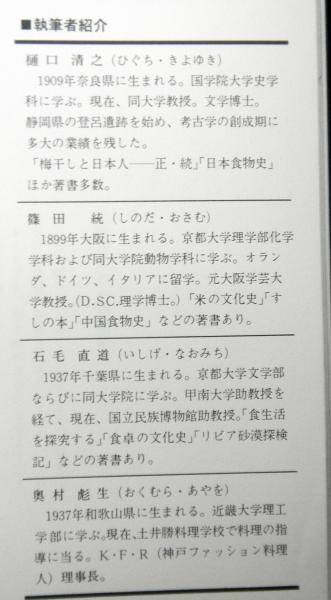 ■執筆者紹介
樋口清之（ひぐち・きよゆき）
1909年奈良県に生まれる。国学院大学史学
科に学ぶ。現在、同大学教授。文学博士。
静岡県の登呂遺跡を始め、考古学の創成期に
多大の業績を残した。
「梅干しと日本人──正・続」「日本食物史」
ほか著書多数。
篠田　統（しのだ・おさむ）
1899年大阪に生まれる。京都大学理学部化学
学科および同大学院動物学科に学ぶ。オラン
ダ、ドイツ、イタリアに留学。元大阪学芸大
学教授。（D.SC.理学博士。）「米の文化史」「す
しの本」「中国食物史」などの著書あり。
石毛直道（いしげ・なおみち）
1937年千葉県に生まれる。京都大学文学部
ならびに同大学院に学ぶ。甲南大学助教授を
経て、現在、国立民族博物館助教授。「食生活
を探究する」「食卓の文化史」「リビア砂漠探検
記」などの著書あり。
奥村彪生（おくむら・あやを）
1937年和歌山県に生まれる。近畿大学理工
学部に学ぶ。現在、土井勝料理学校で料理の指
導に当る。K・F・R（神戸ファッション料理
人）理事長。